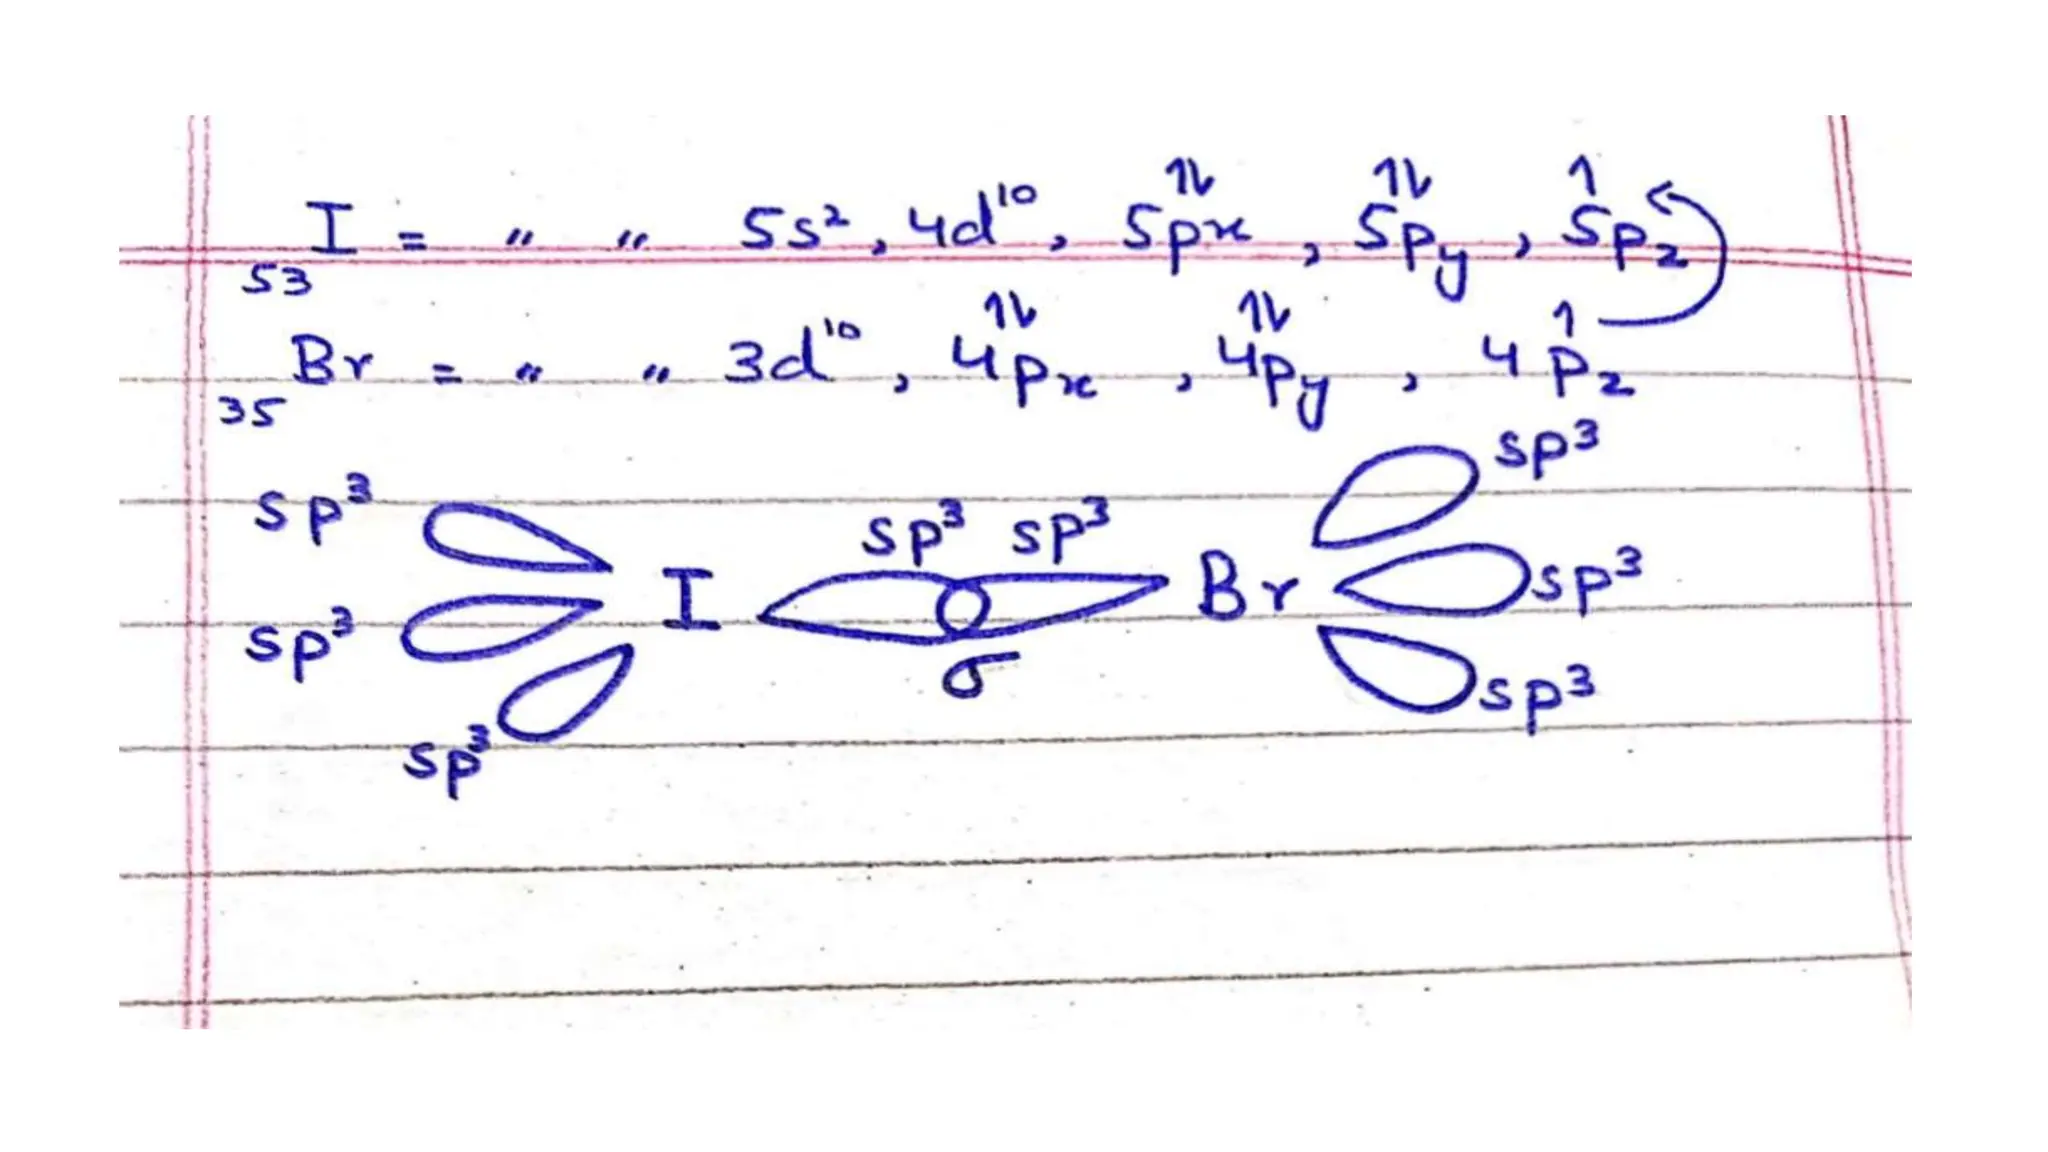 ⥮ ⥮ ↿
₅₃I = " " 5s², 4d¹⁰, 5px, 5py, 5pz
⥮ ⥮ ↿
₃₅Br = " " 3d¹⁰, 4px, 4py, 4pz
sp³
sp³ sp³ sp³
sp³ I Br sp³
σ sp³
sp³